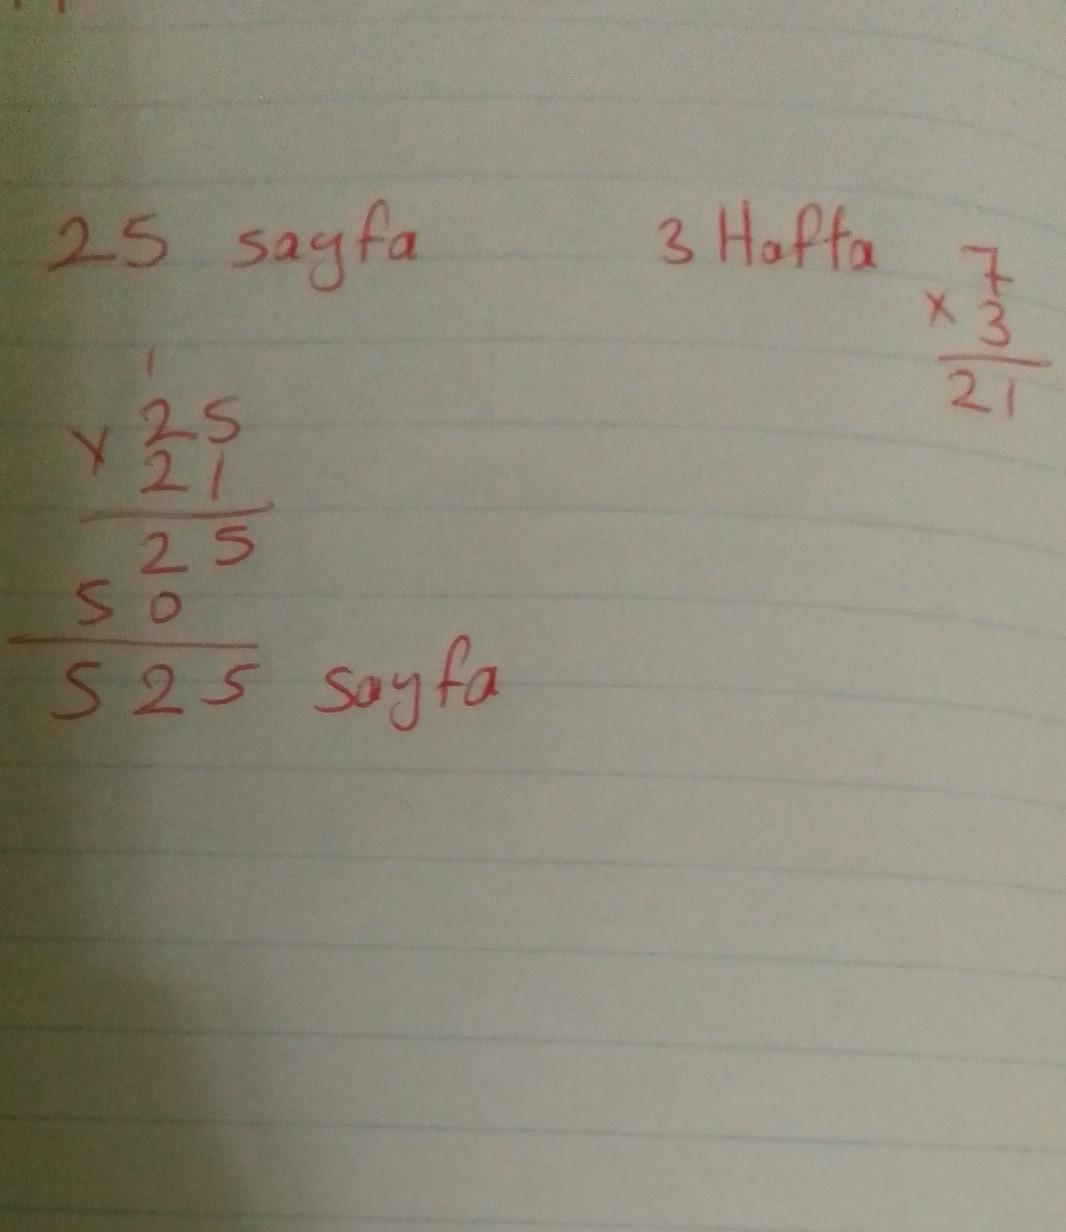 25 sayfa 3 Hafta 7
x 3
21
1
x 25
21
25
50
525 sayfa